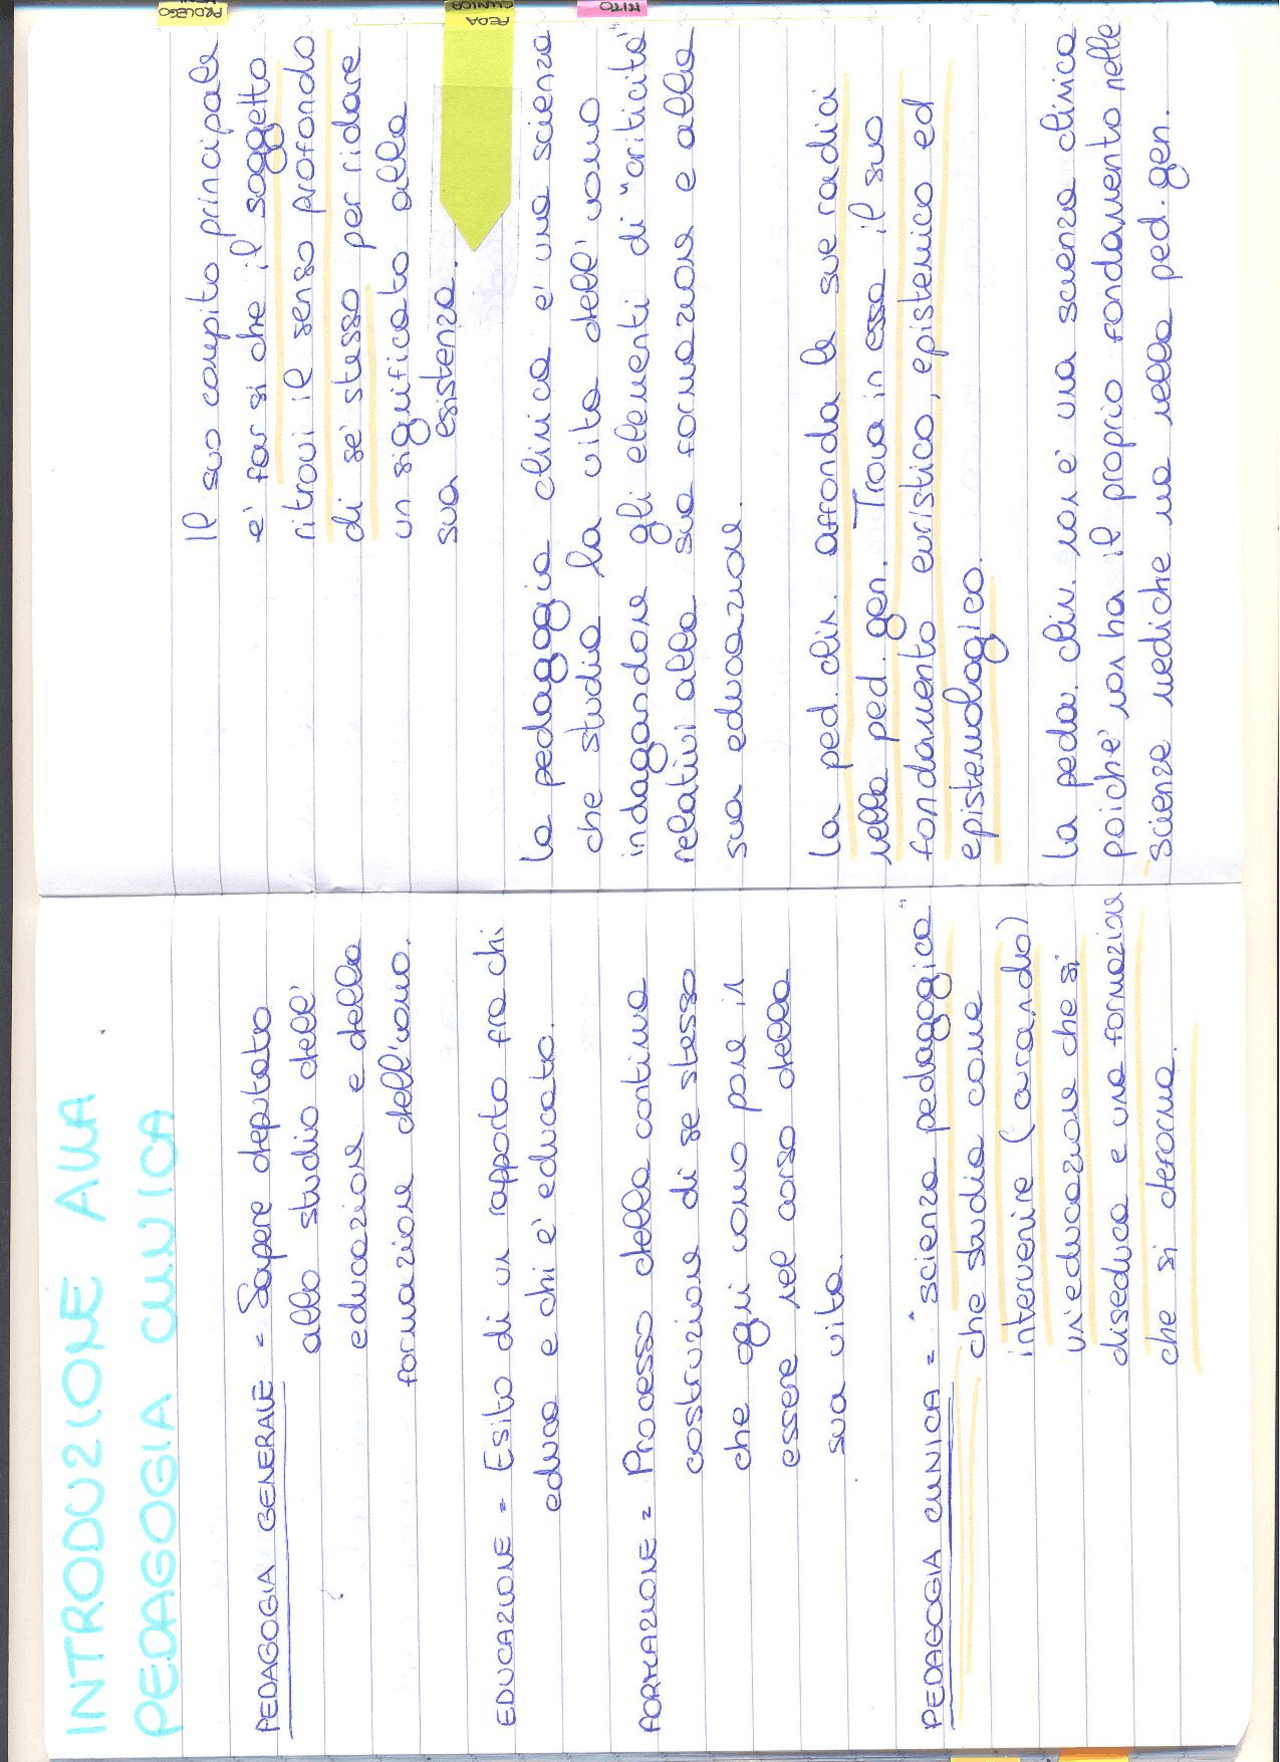 INTRODUZIONE ALLA
PEDAGOGIA CLINICA
PEDAGOGIA GENERALE = Sapere deputato
allo studio dell'
educazione e della
formazione dell'uomo.
EDUCAZIONE = Esito di un rapporto fra chi
educa e chi e' educato.
FORMAZIONE = Processo della continua
costruzione di se stesso
che ogni uomo pone in
essere nel corso della
sua vita.
PEDAGOGIA CLINICA = "scienza pedagogica"
che studia come
intervenire (curando)
un'educazione che si
diseduca e una formazione
che si deforma.
Il suo compito principale
e' far si che il soggetto
ritrovi il senso profondo
di se' stesso per ridare
un significato alla
sua esistenza.
La pedagogia clinica e' una scienza
che studia la vita dell'uomo
indagandone gli elementi di "criticità"
relativi alla sua formazione e alla
sua educazione.
La ped. clin. affonda le sue radici
nella ped. gen. Trova in essa il suo
fondamento euristico, epistemico ed
epistemologico.
La peda. clin. non e' una scienza clinica
poiche' non ha il proprio fondamento nelle
scienze mediche ma nella ped. gen.
PROLEGO
MENI
PEDA
CLINICA
MITO